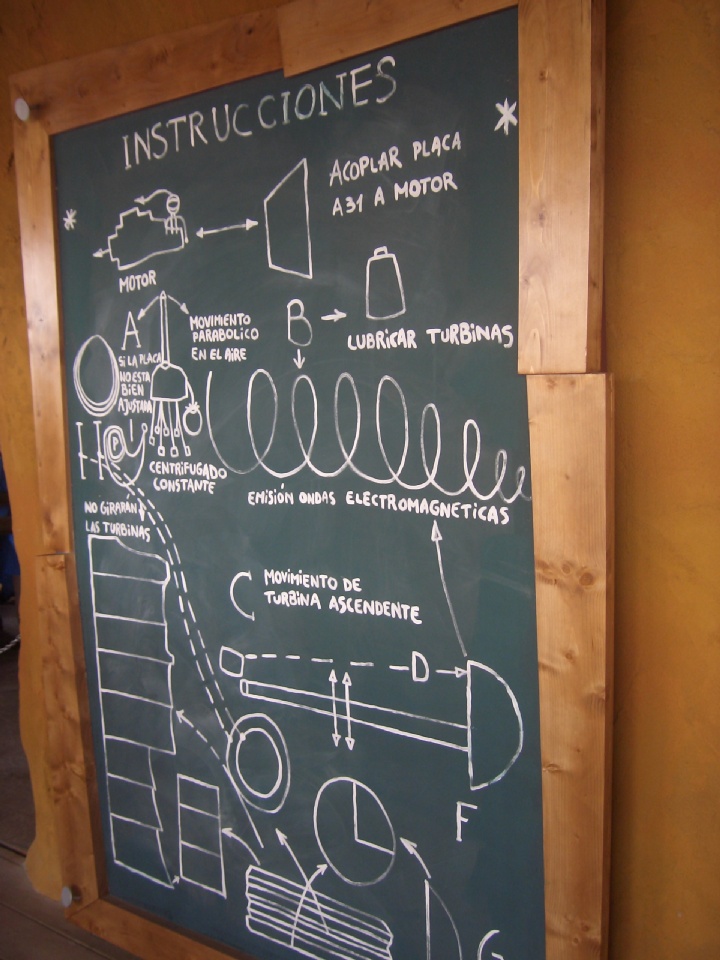 INSTRUCCIONES
ACOPLAR PLACA
A31 A MOTOR
MOTOR
A
MOVIMIENTO
PARABOLICO
EN EL AIRE
B
LUBRICAR TURBINAS
SI LA PLACA
NO ESTA
BIEN
AJUSTADA
H
P
CENTRIFUGADO
CONSTANTE
EMISIÓN ONDAS ELECTROMAGNETICAS
NO GIRARÁN
LAS TURBINAS
MOVIMIENTO DE
TURBINA ASCENDENTE
D
F
G